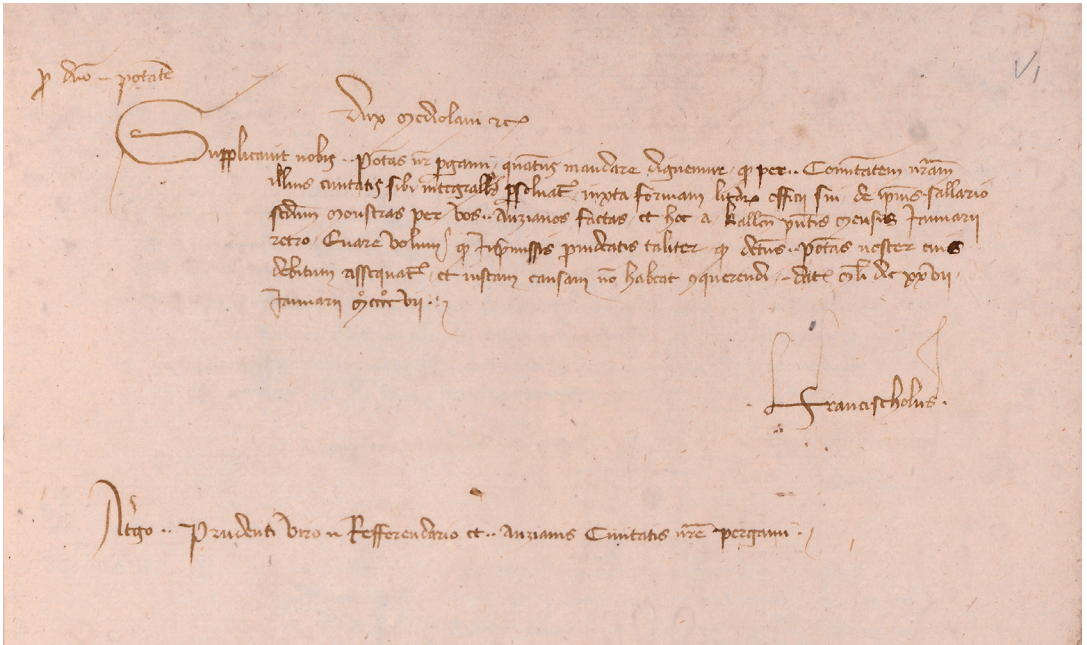 p dno .. potate
VI
Dux Mediolani etc
Supplicavit nobis .. Potas nr pgami, quatus mandare dignemur, qd per .. Comutatem nram
illius civitatis sibi integralr psolvat, iuxta formam lrar officii sui, de ipius sallario
scdum monstras per vos .. Anzianos factas, et hoc a kalln pntis mensis Januarii
retro. Quare volum qd Inpmissis pvideatis taliter, qd dctus .. Potas nester eius
debitum assequat, et iustam causam no habeat conquerendi. Dat Mli die xxvii
Januarii Mcccc vii.
Francischolus.
Atgo .. Prudenti viro n Refferendario et .. Anzianis Civitatis nre pergami.